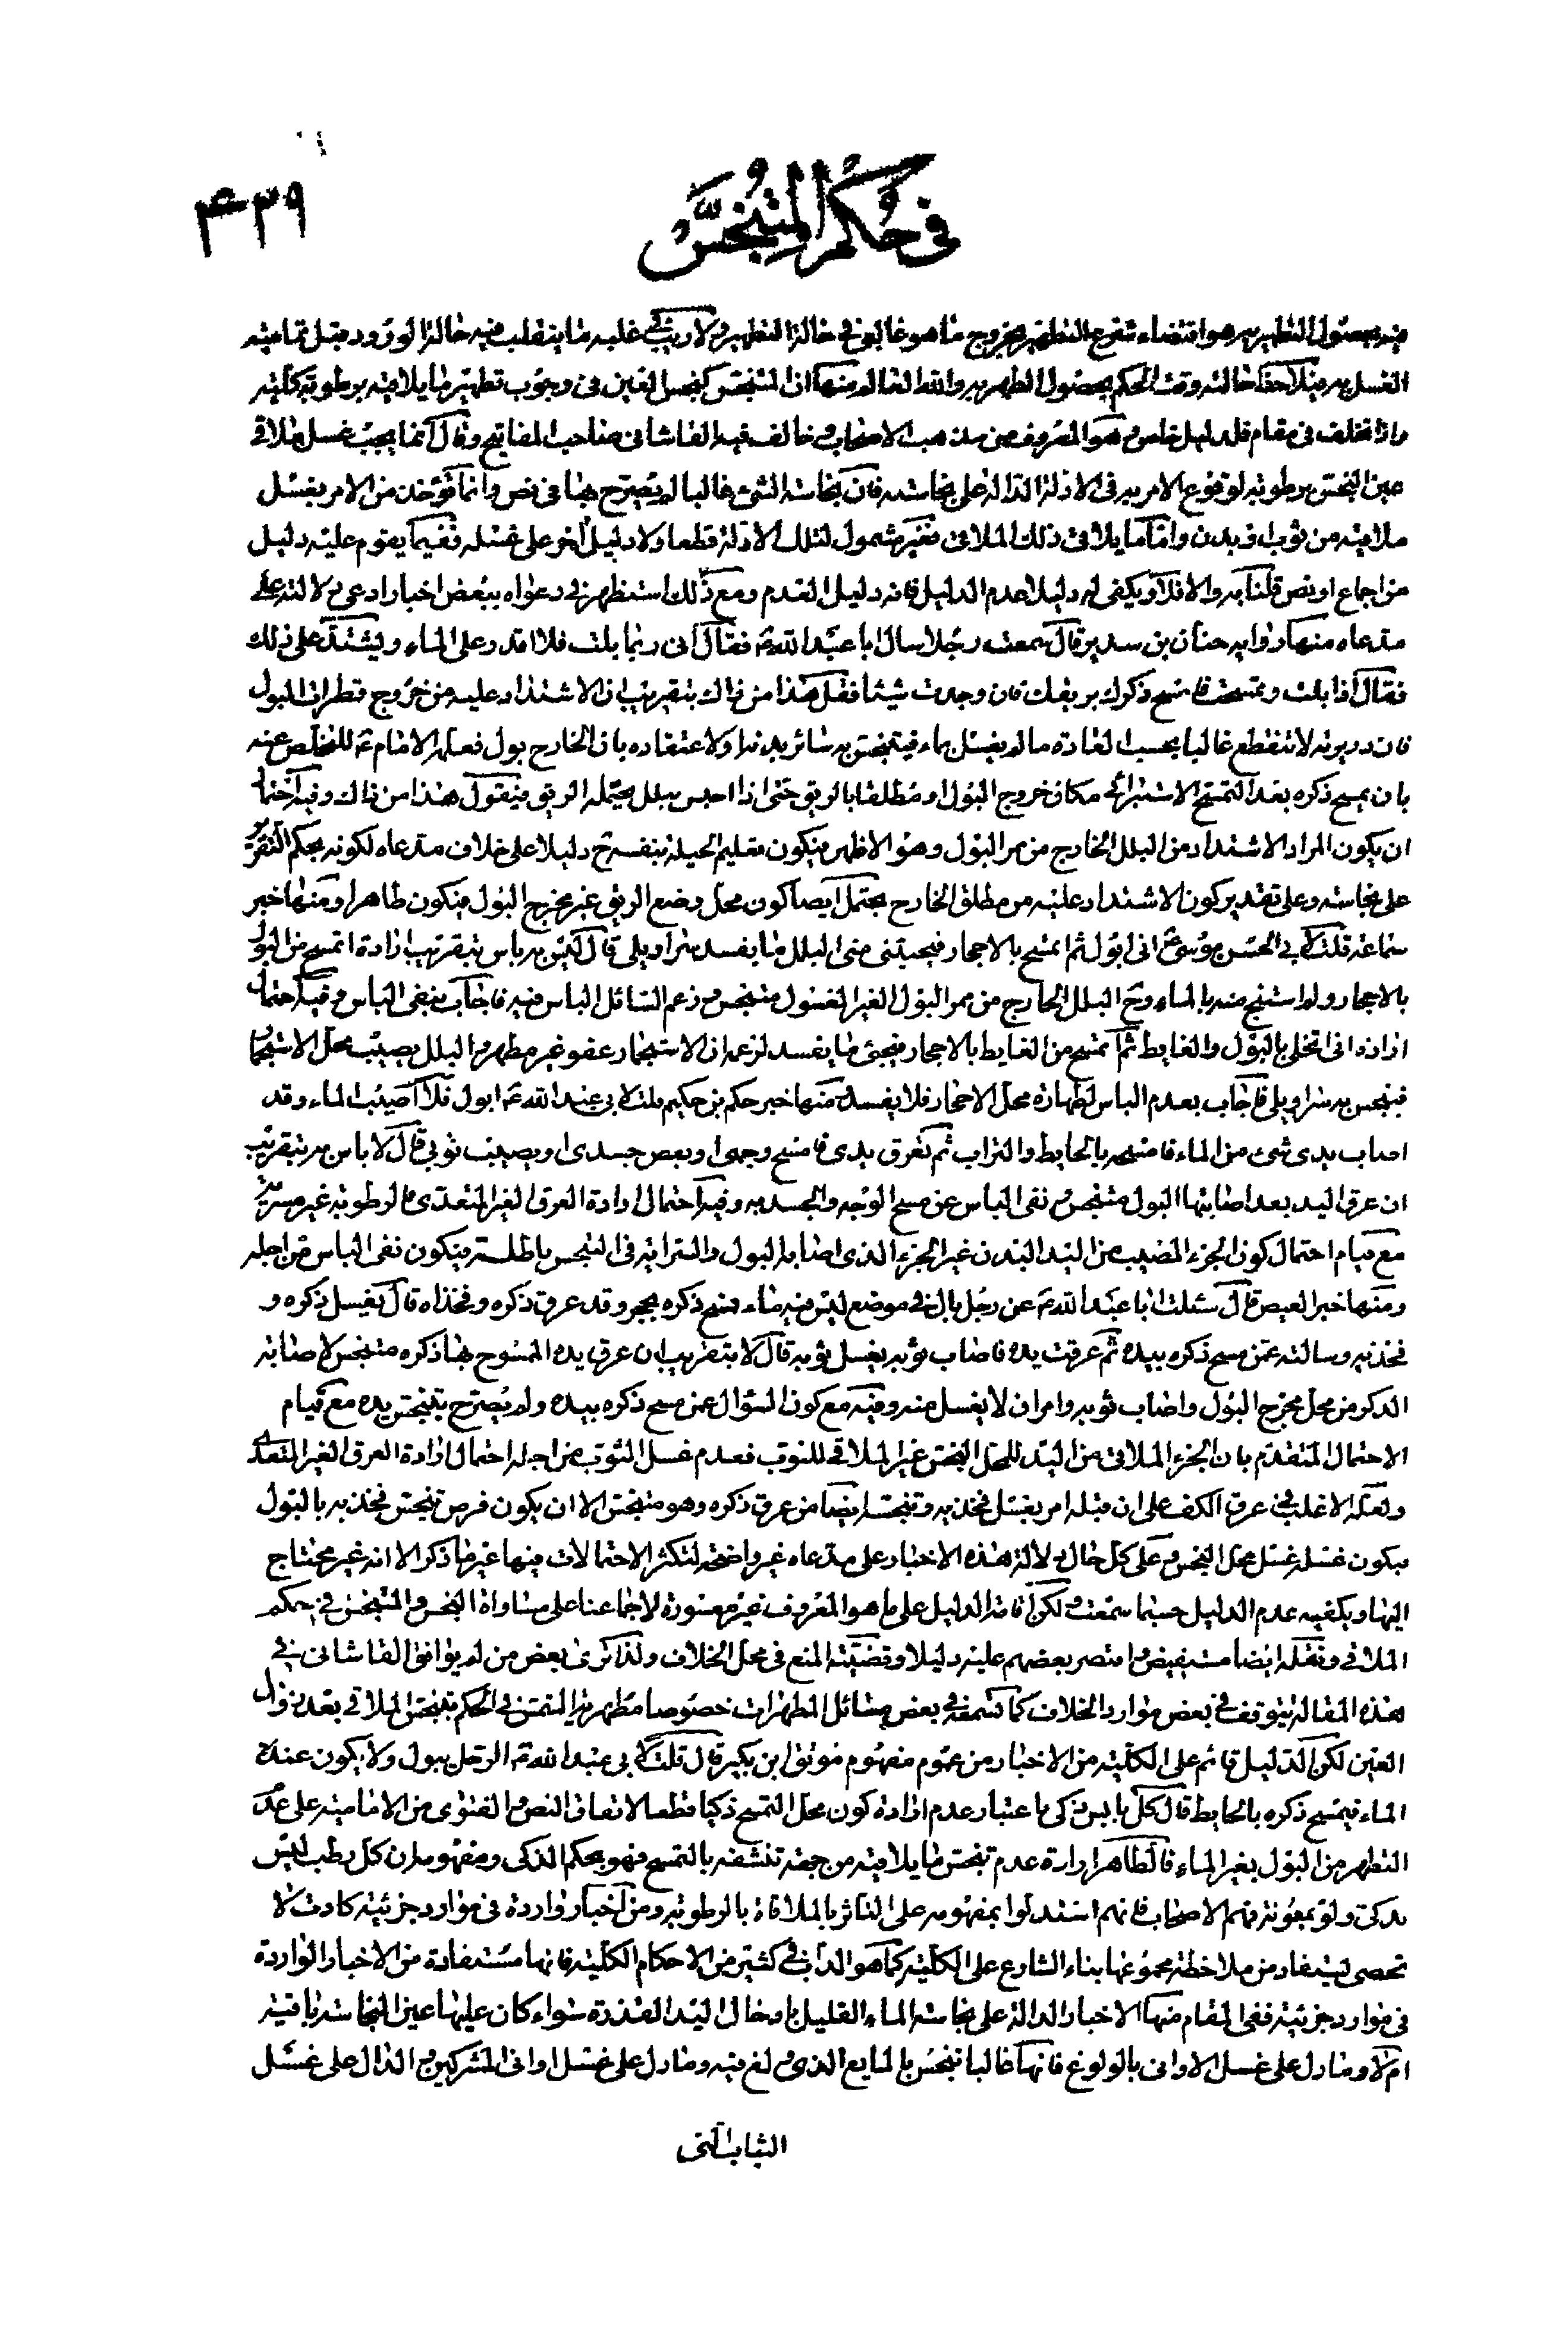 في حكم المتنجس
۴۳۹
فيه بحصول التطهير به هو اقتضاء تفرع التطهير بخروج ما هو غالب في حالة التطهير ولا ريب في غلبه ما ينقلب فيه حالة الورود قبل تماميته
الغسل به فيلاحظ حالته وقت الحكم بحصول الطهر به والله العالم منها ان المتنجس كنجس العين في وجوب تطهير ما يلاقيه برطوبة كلية
واذا تخلف في مقام فلدليل خاص وهو المعروف من مذهب الاصحاب وخالف فيه القاشاني صاحب المفاتيح وقال انما يجب غسل ملاقي
عين النجس برطوبة لوقوع الامر به في الادلة الدالة على نجاسته فان نجاسة الشئ غالبا لم يصرح بها في نص وانما تؤخذ من الامر بغسل
ملاقيه من ثوب او بدن واما ما يلاقي ذلك الملاقي فغير مشمول لتلك الادلة قطعا ولا دليل اخر على غسله ففيما يقوم عليه دليل
من اجماع او نص قلنا به والا فلا ويكفي له دليلا عدم الدليل فانه دليل العدم ومع ذلك استظهر في دعواه ببعض اخبار ادعى دلالته على
مدعاه منها رواية حنان بن سدير قال سمعت رجلا سال ابا عبد الله ع فقال اني ربما بلت فلا اقدر على الماء ويشتد على ذلك
فقال اذا بلت وتمسحت فامسح ذكرك بريقك فان وجدت شيئا فقل هذا من ذاك بتقريب ان الاشتداد عليه من خروج قطرات البول
فان دريرته لا تنقطع غالبا بحسب العادة ما لم يغسل بماء فيتنجس به سائر بدنه اولا عتقاده بان الخارج بول فعلمه الامام ع للتخلص عنه
بان يمسح ذكره بعد التمسح الاستبرائي مكان خروج البول او مطلقا بالريق حتى اذا احس ببلل يحتمله الريق فيقول هذا من ذاك وفيه احتمال
ان يكون المراد الاشتداد من البلل الخارج من ممر البول وهو الاظهر فيكون تعليم الحيلة بنفسه ح دليلا على خلاف مدعاه لكونه بحكم التقرير
على نجاسته وعلى تقدير كون الاشتداد عليه من مطلق الخارج يحتمل ايضا كون محل وضع الريق غير مخرج البول فيكون طاهرا ومنها خبر
سماعة قلت لابي الحسن موسى ع اني ابول ثم اتمسح بالاحجار فيجيئني مني البلل ما يفسد سراويلي قال ليس به باس بتقريب ارادة اتمسح من البول
بالاحجار ولم استنج منه بالماء وح البلل الخارج من ممر البول الغير المغسول متنجس وزعم السائل الباس فيه فاجاب بنفي الباس وفيه احتمال
ارادة اني اتخلى بالبول والغايط ثم اتمسح من الغايط بالاحجار فيجئ ما يفسد لزعمه ان الاستجمار عفو غير مطهر والبلل يصيب محل الاستجمار
فينجس به سراويلي فاجاب بعدم الباس لطهارة محل الاحجار فلا يفسد ومنها خبر حكم بن حكيم قلت لابي عبد الله ع ابول فلا اصيب الماء وقد
اصاب يدي شئ من الماء فامسحه بالحايط والتراب ثم تعرق يدي فامسح وجهي او بعض جسدي او يصيب ثوبي قال لا باس به بتقريب
ان عرق اليد بعد اصابتها البول متنجس ونفى الباس عن مسح الوجه والجسد به وفيه احتمال ارادة العرق الغير المتعدي فالرطوبة غير مسرية
مع قيام احتمال كون الجزء المصيب من اليد البدن غير الجزء الذي اصابه البول والسراية في التنجس باطلة فيكون نفى الباس من اجله
ومنها خبر العيص قال سئلت ابا عبد الله ع عن رجل بال في موضع ليس فيه ماء فمسح ذكره بحجر وقد عرق ذكره وفخذاه قال يغسل ذكره و
فخذيه وسالته عمن مسح ذكره بيده ثم عرقت يده فاصاب ثوبه يغسل ثوبه قال لا بتقريب ان عرق يده الممسوح بها ذكره متنجس لاصابته
الذكر من محل مخرج البول واصاب ثوبه وامر ان لا يغسل منه وفيه مع كون السؤال عمن مسح ذكره بيده ولم يصرح بتنجس يده مع قيام
الاحتمال المتقدم بان الجزء الملاقي من اليد للمحل النجس غير الملاقي للثوب فعدم غسل الثوب من اجله احتمال ارادة العرق الغير المتعدي
ولعله الاغلب في عرق الكف على ان قبله امر بغسل فخذيه وتنجسه ايضا من عرق ذكره وهو متنجس الا ان يكون فرض تنجس فخذيه بالبول
فيكون غسله غسل محل النجس وعلى كل حال دلالة هذه الاخبار على مدعاه غير واضحة لتكثر الاحتمالات فيها غير ما ذكر الا انه غير محتاج
اليها ويكفيه عدم الدليل حسبما سمعت ولكن اقامة الدليل على ما هو المعروف غير معسورة لاجماعنا على مساواة النجس والمتنجس في حكم
الملاقي ونقله ايضا مستفيض واقتصر بعضهم عليه دليلا وقضيته المنع في محل الخلاف ولذا ترى بعض من لم يوافق القاشاني في
هذه المقالة يتوقف في بعض موارد الخلاف كما تسمعه في بعض مسائل المطهرات خصوصا مطهرية الشمس في الحكم بتنجس الملاقي بعد زوال
العين لكن الدليل قائم على الكلية من الاخبار من عموم مفهوم موثق ابن بكير قال قلت لابي عبد الله ع الرجل يبول ولا يكون عنده
الماء فيمسح ذكره بالحايط قال كل يابس ذكى باعتبار عدم ارادة كون محل التمسح ذكيا قطعا لاتفاق النص والفتوى من الامامية على عدم
التطهر من البول بغير الماء فالظاهر ارادة عدم تنجس ما يلاقيه من جهة تنشفه بالتمسح فهو بحكم الذكى ومفهومه ان كل رطب ليس
بذكى ولو بمعونة فهم الاصحاب فانهم استدلوا بمفهومه على التاثر بالملاقاة بالرطوبة ومن اخبار واردة في موارد جزئية كادت لا
تحصى يستفاد من ملاحظة مجموعها بناء الشارع على الكلية كما هو الداب في كثير من الاحكام الكلية فانها مستفادة من الاخبار الواردة
في موارد جزئية ففي المقام منها الاخبار الدالة على نجاسة الماء القليل بادخال اليد القذرة سواء كان عليها عين النجاسة باقية
ام لا وما دل على غسل الاواني بالولوغ فانها غالبا تنجس بالمايع الذي ولغ فيه وما دل على غسل اواني المشركين والدال على غسل
الثياب التي